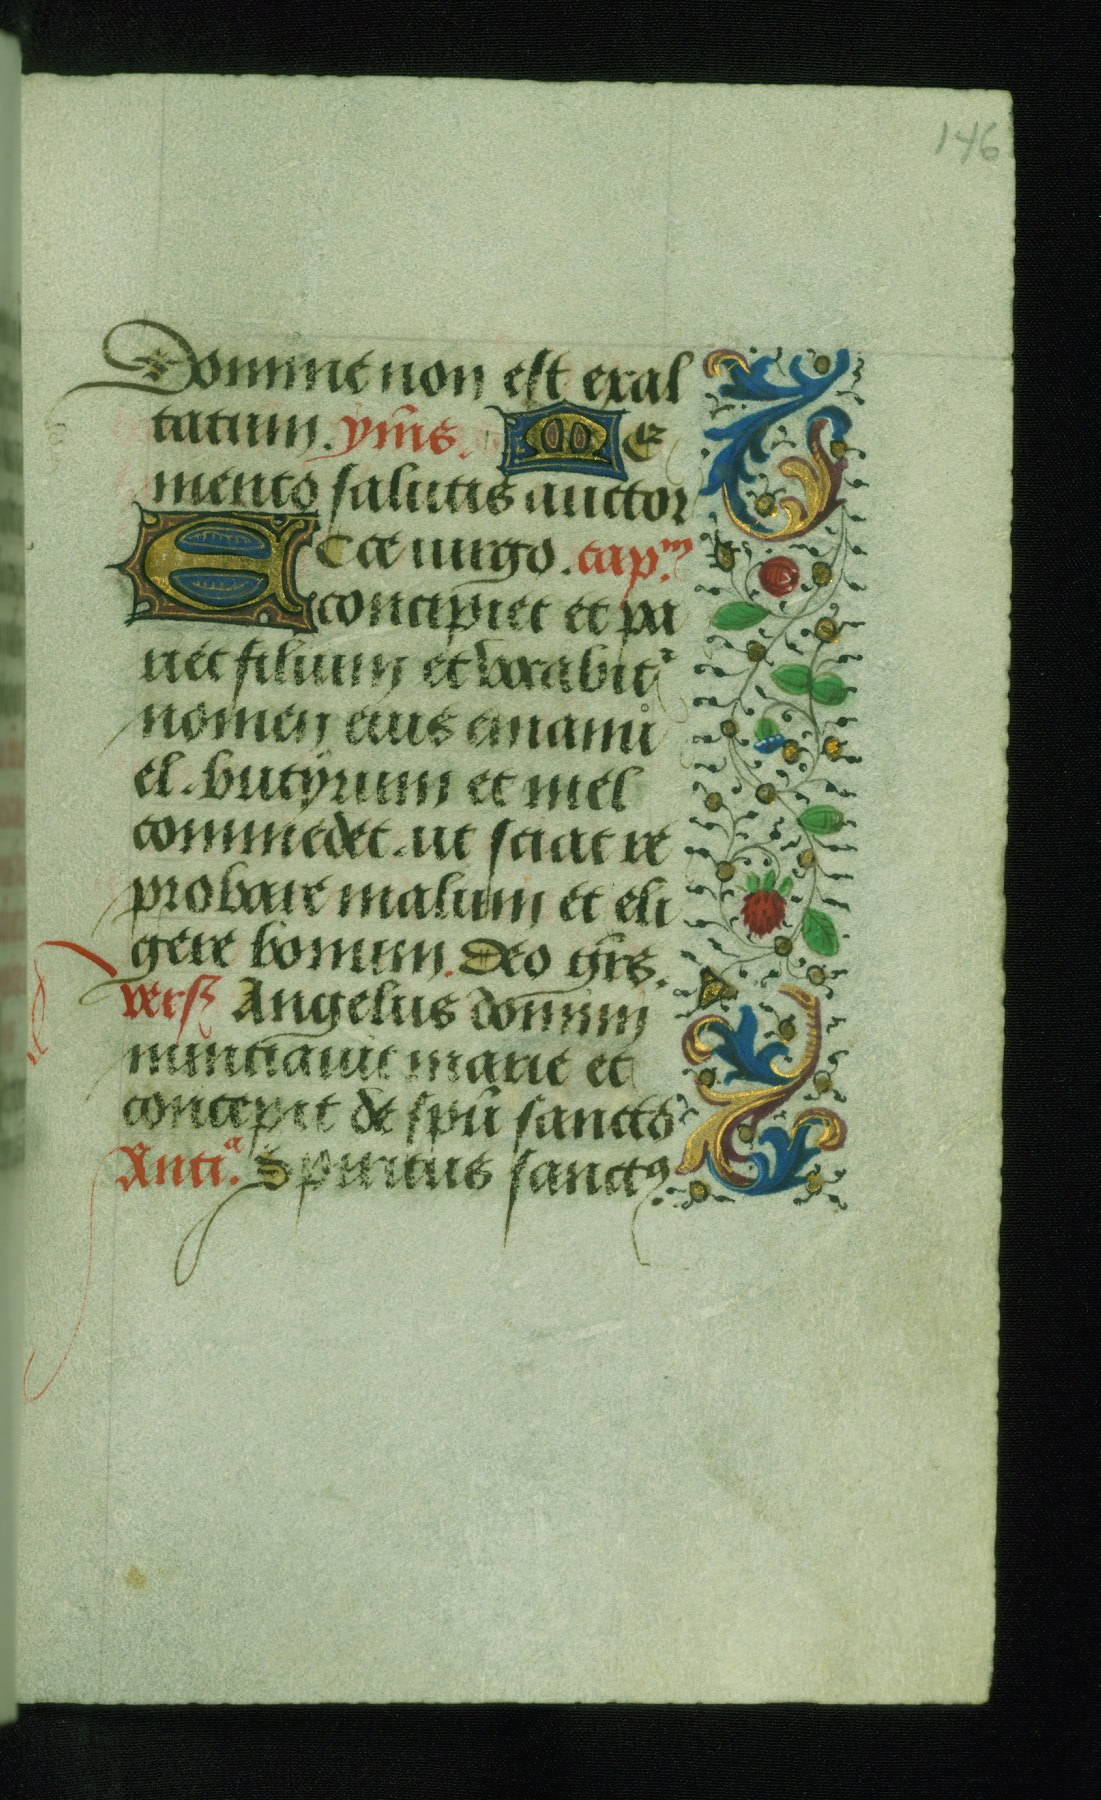 146
Domine non est exal
tatum. ym̄s. Me
mento salutis auctor
Ecce uirgo. cap.m
concipiet et pa
riet filium et vocabit᷑
nomen eius emanu
el. butyrum et mel
commedet. ut sciat re
probare malum et eli
gere bonum. Deo gr̄s.
vers̄ Angelus domini
nuntiauit marie et
concepit de spū sancto
Anti.a Spiritus sanctꝰ.